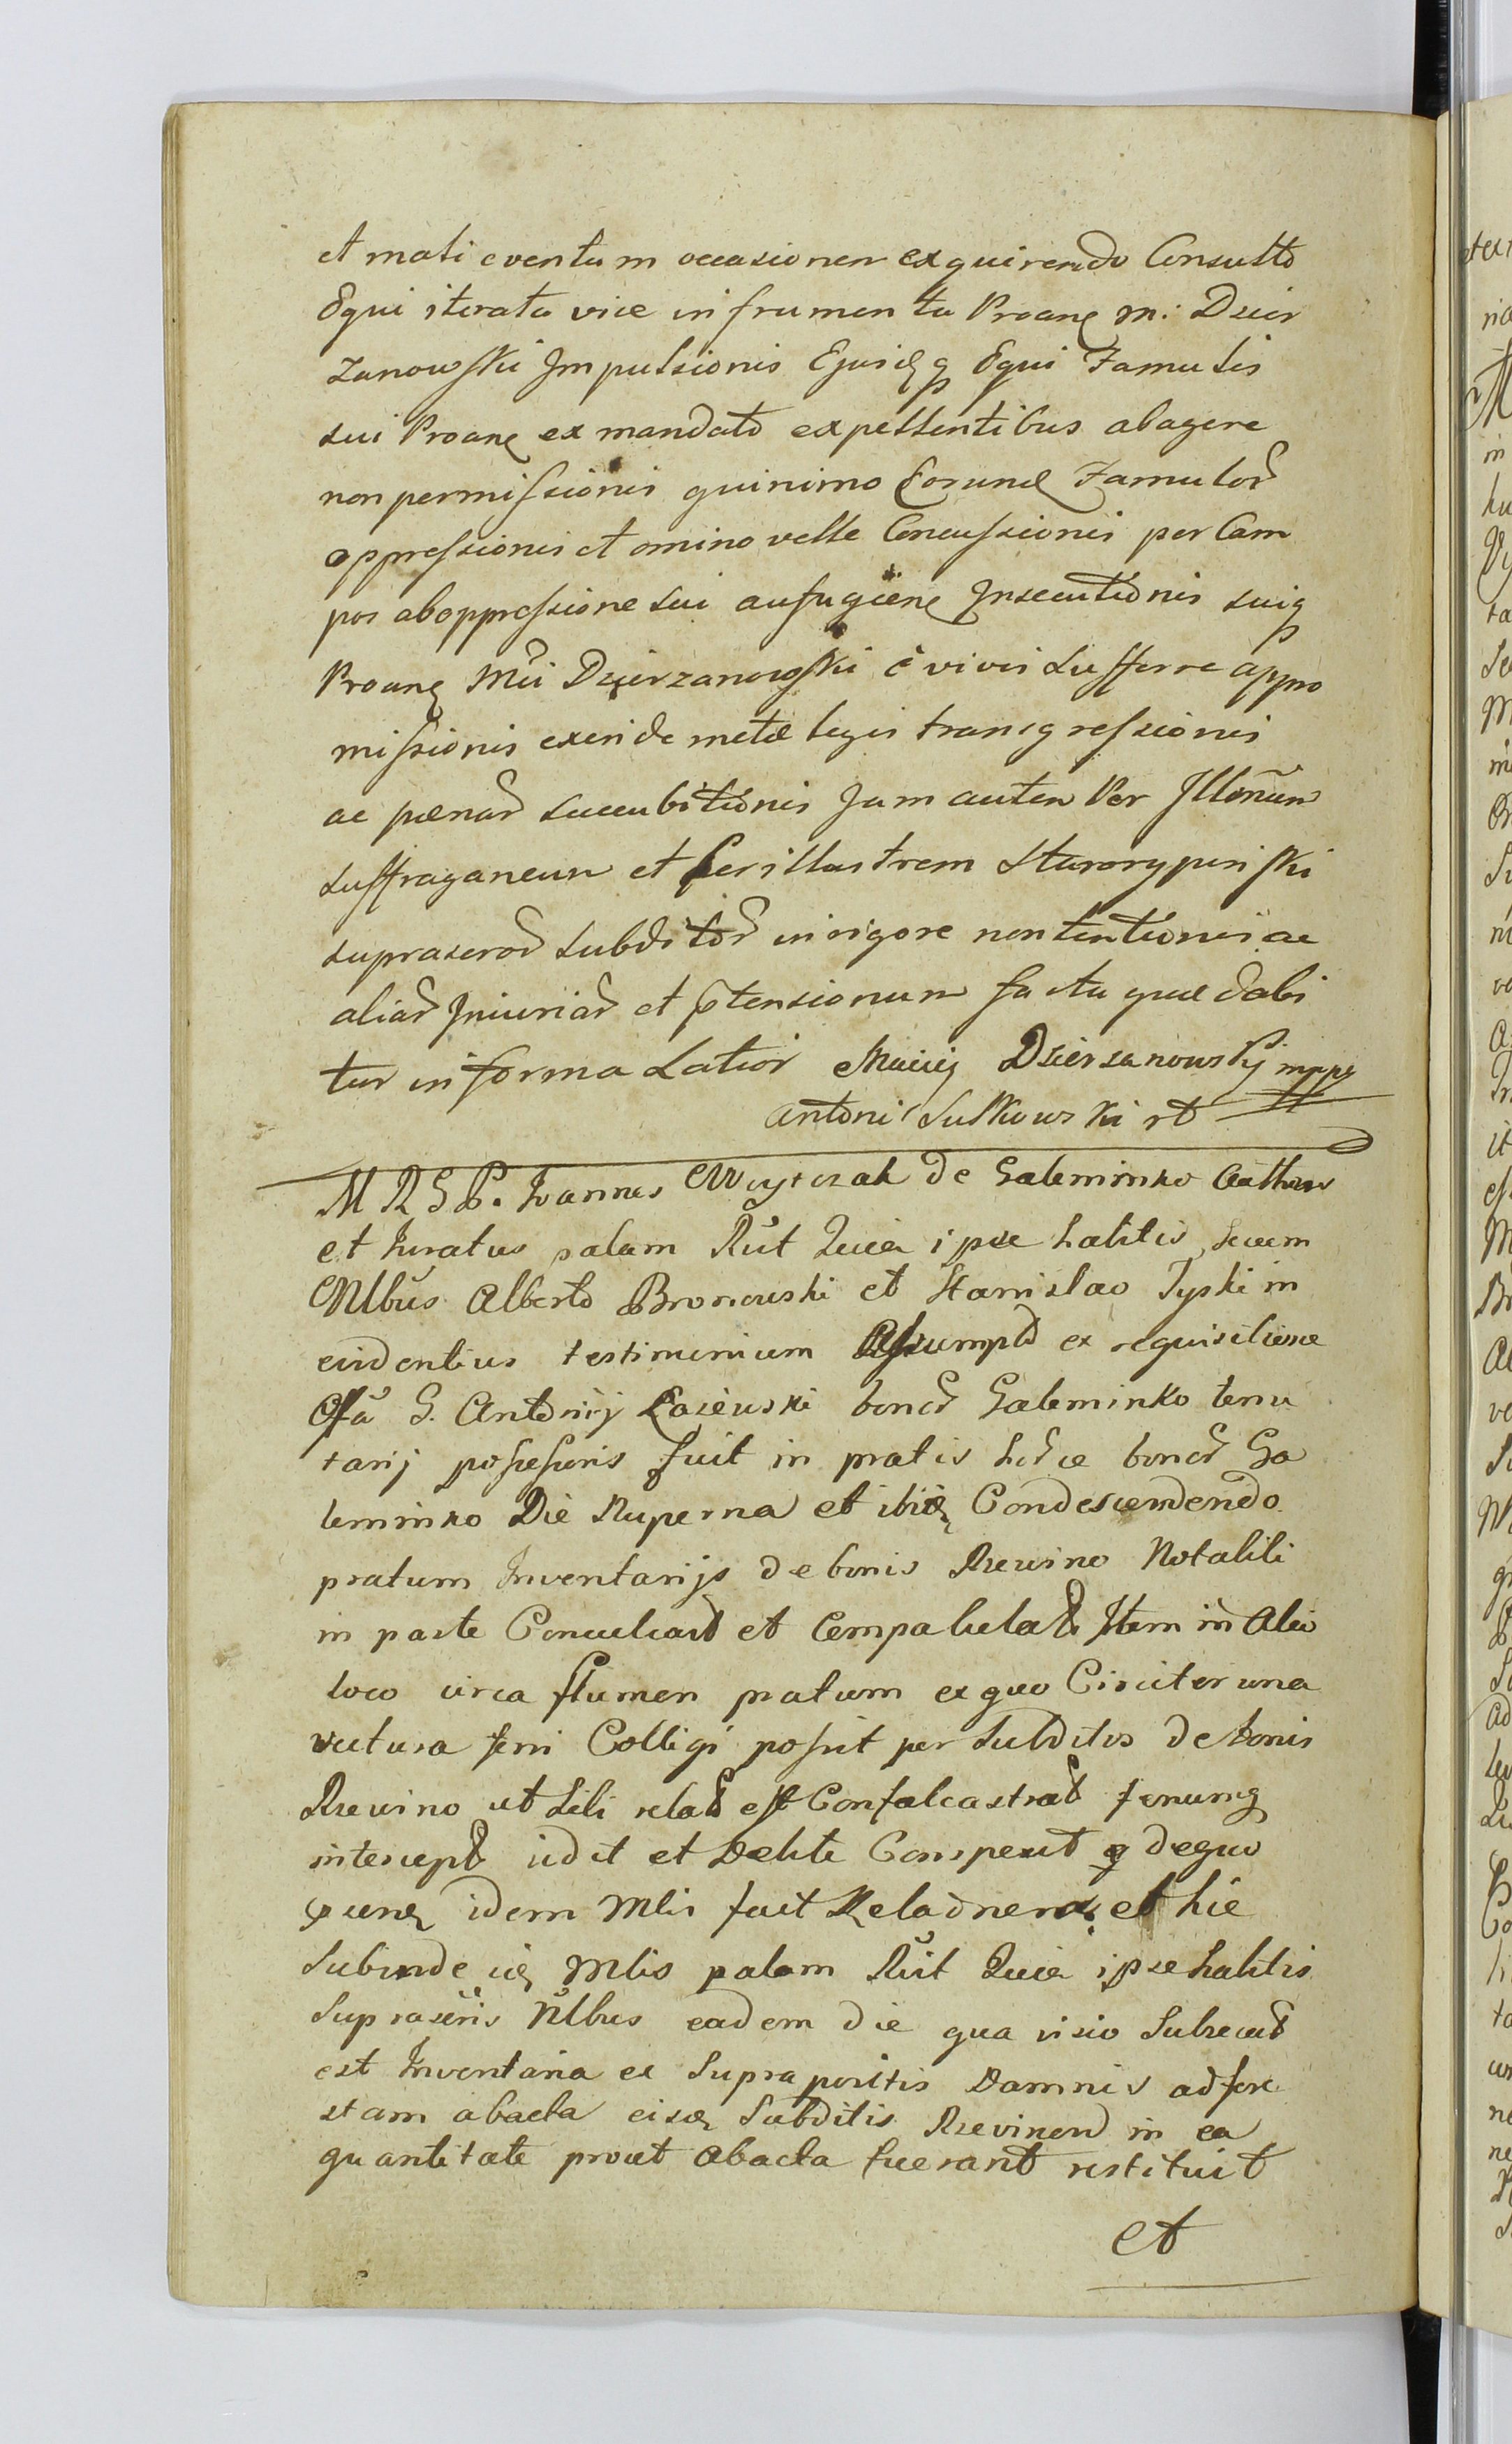 et mali eventum occasionem exquirendo Consulto
Equi iterata vice in frumenta Proanę m: Dzier
zanowski Impulsionis Ejusdęq Equi Famulis
sui Proanę ex mandato expellentibus abagere
non permissionis quinimo Eorundę Famulor
oppressionis et omino velle Concussionis per Cam
pos ab oppressione sui aufugienę Insecutionis suiq
Proanę Mci Dzierzanowski e vivis sufferre appro
missionis exinde metæ legis transgressionis
ac pœnar succubitionis Jam autem Per Illorum
suffraganeum et Perillustrem Starorypinski
suprascror subditor in rigore non tentionis ac
aliar Iniuriar et ptensionum facta quæ dabi
tur in forma Latior Maciej Dzierzanowskj mppą
Antoni Sutkowski rt
M R G P. Ioannes Woytczak de Galeminko authen
et Iuratus palam Rŭt Quia ipse habitis secum
Nlbŭs Alberto Bronowski et Stanislao Tyski in
evidentius testimonium Assumpt ex requisitione
Gfa G. Antonij Łasiewski bonor Galeminko tenu
tarij possessoris fuit in pratis hor ce bonor Ga
leminko Die Nuperna et ibidę Condescendendo
pratum Inventarijs de bonis Rzewino Notabili
in parte Conculcat et Compabulat Item in Alio
loco circa flumen pratum ex quo Circiter una
vectura feni Colligi possit per Subditos de bonis
Rzewino ut Sibi relat est Confalcastrat fenumq
intercept vidit et Debite Comperit q de quo
idem Mlis fecit Relaõnem et hic
Subinde idę Mlis palam Rŭit Quia ipse habitis
Suprascris Nlbus eadem die qua visio Subsecut
est Inventaria ex Suprapositis Damnis ad fore
stam abacta eisdę Subditis Rzevinen in ea
quantitate prout Abacta fuerant restituit
et